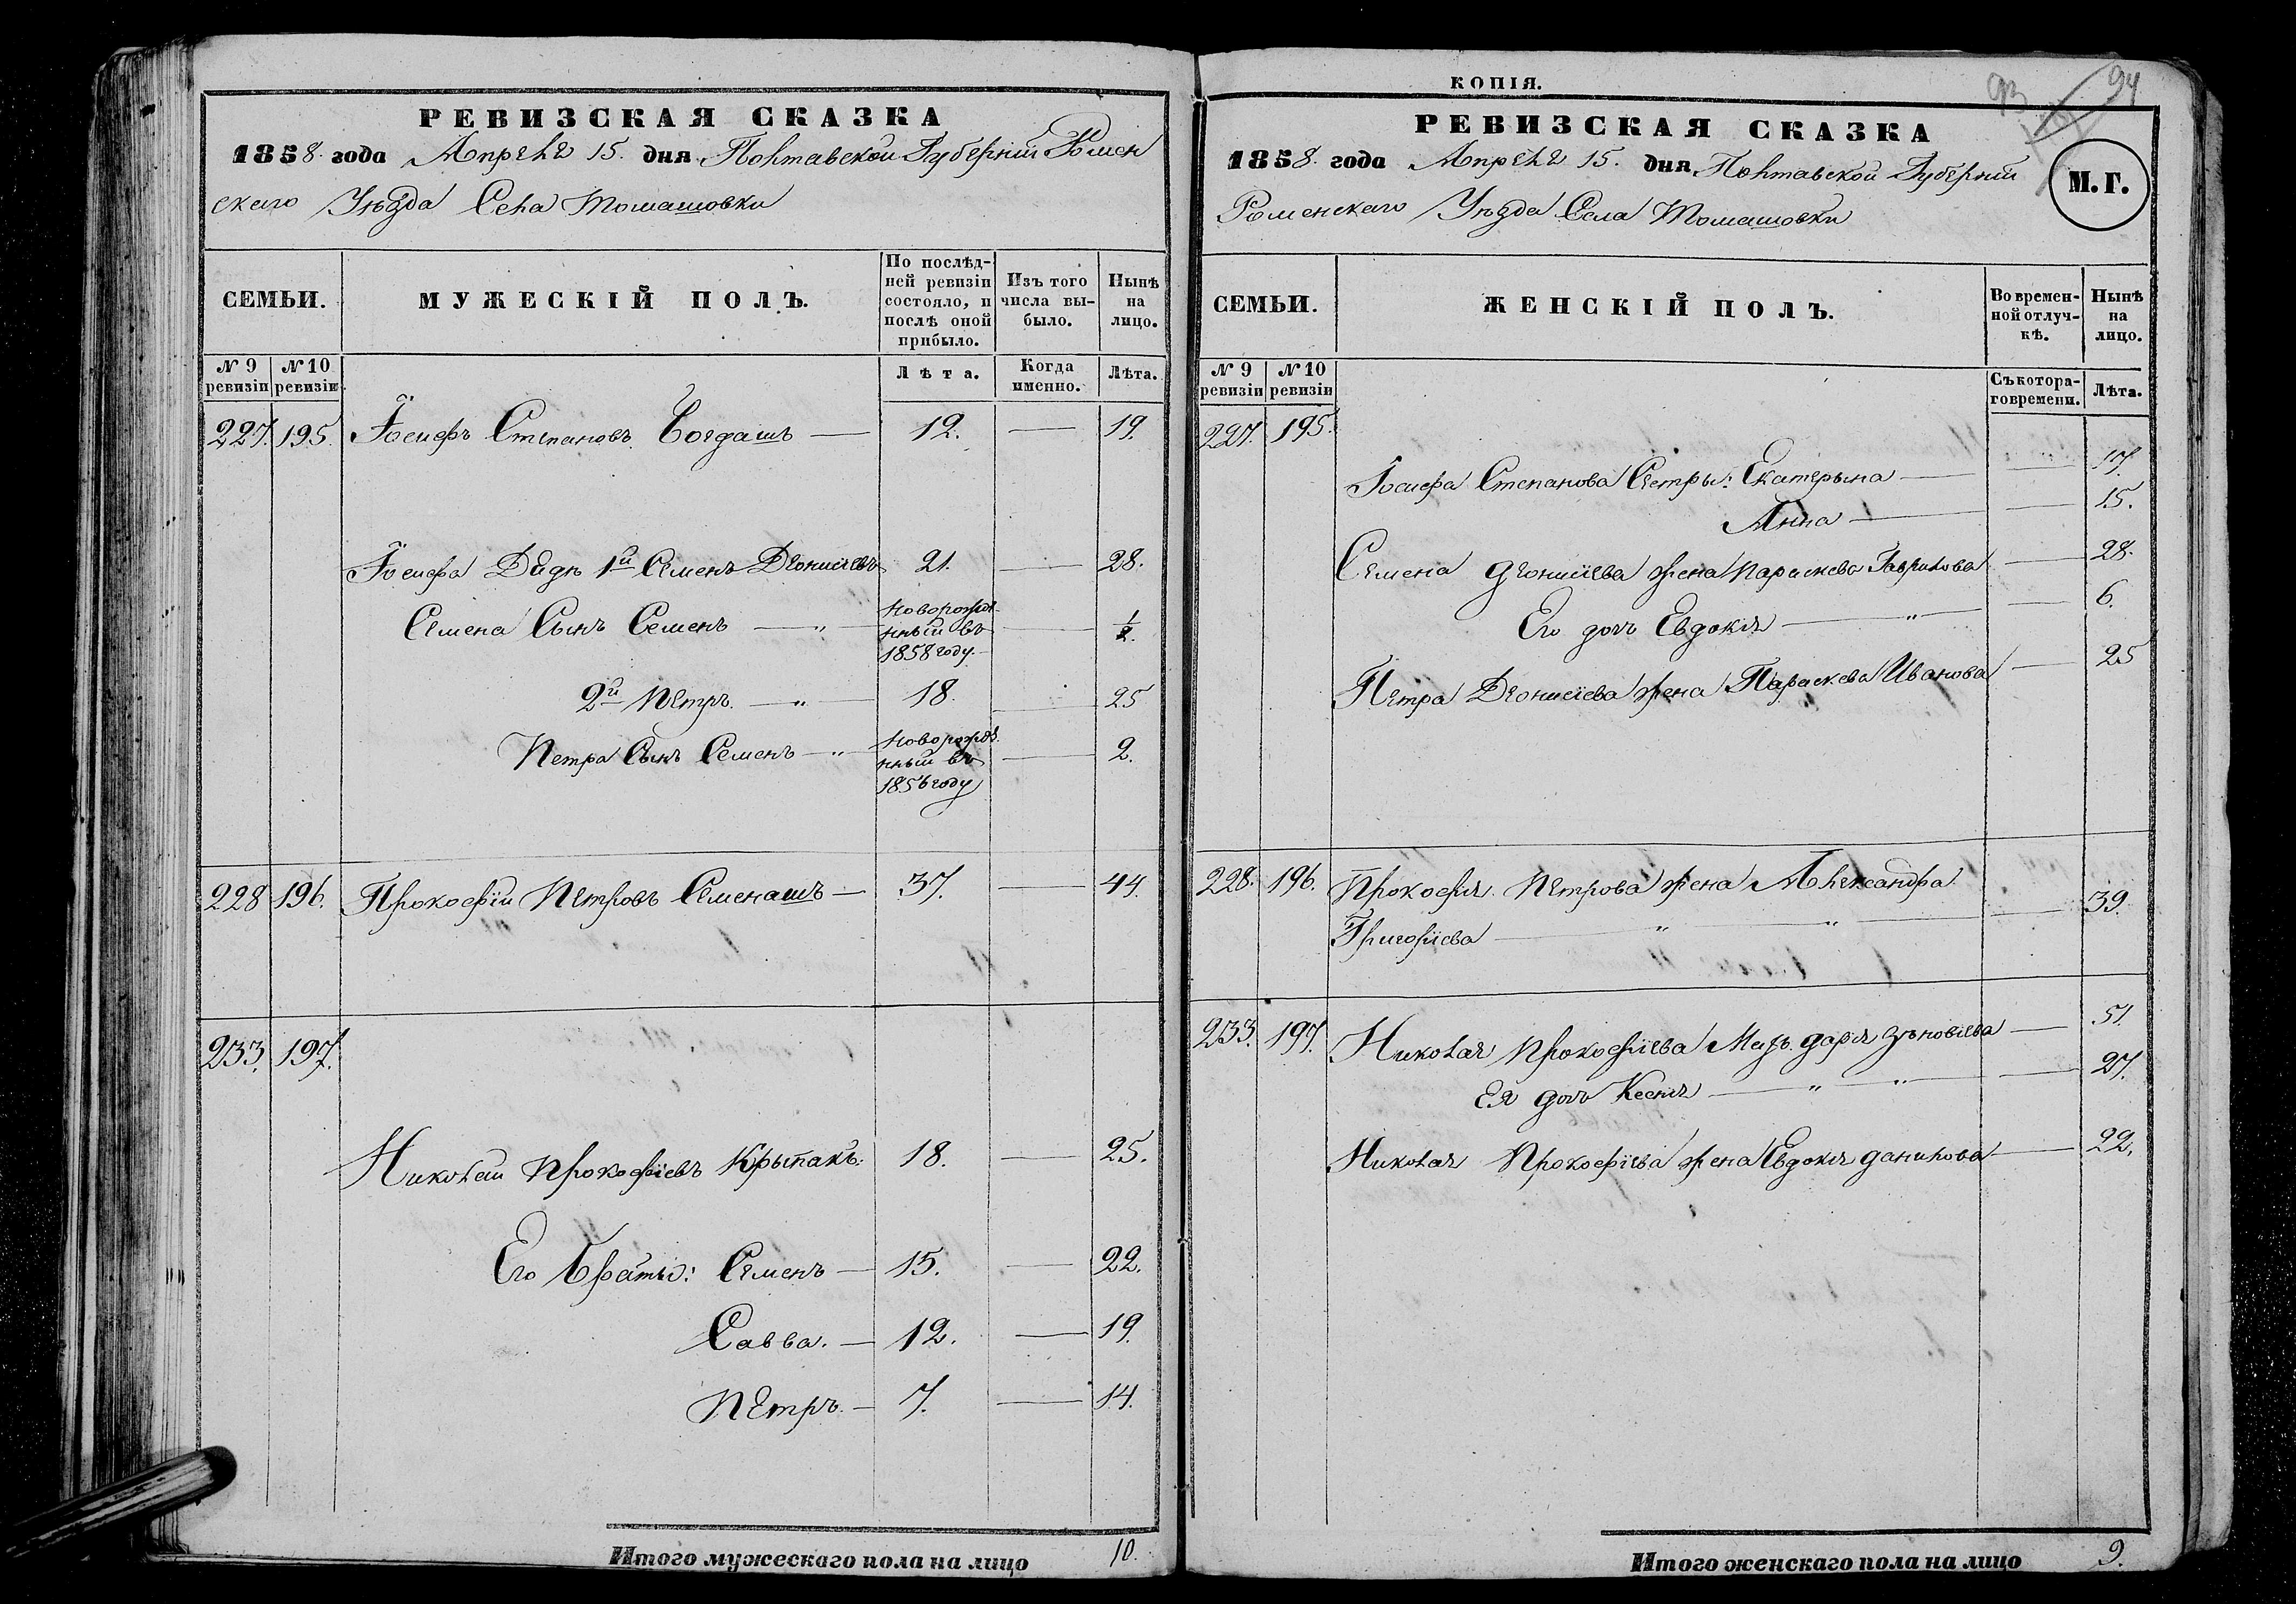 РЕВИЗСКАЯ СКАЗКА
1858. года Апреля 15. дня Полтавской Губерніи Ромен
скаго Уѣзда Села Томашовки
СЕМЬИ.
МУЖЕСКІЙ ПОЛЪ.
По послѣд-
ней ревизіи
состояло, и
послѣ оной
прибыло.
Изъ того
числа вы-
было.
Нынѣ
на
лицо.
№ 9
ревизіи
№ 10
ревизіи
Лѣта.
Когда
именно.
Лѣта.
227. 195. Іосифъ Степановъ Богдашъ — 12. — 19.
Іосифа Дядя 1й Семенъ Деонисіевъ 21. — 28.
Семена Сынъ Семенъ — „ — новорожде
нный въ
1858 году. — ½.
2й Петръ. — „ — 18. — 25
Петра Сынъ Семенъ — „ новорожде
нный въ
1856 году — 2.
228 196. Прокофій Петровъ Семенашъ — 37. — 44.
233. 197.
Николай Прокофіевъ Крыпакъ: 18. — 25.
Его братья: Семенъ — 15. — 22.
Савва. — 12. — 19.
Петръ. — 7. — 14.
Итого мужескаго пола на лицо 10.
КОПІЯ.
93
94
РЕВИЗСКАЯ СКАЗКА
1858. года Апреля 15. дня Полтавской Губерніи
Роменскаго Уѣзда Села Томашовки
М. Г.
СЕМЬИ.
ЖЕНСКІЙ ПОЛЪ.
Во времен-
ной отлуч-
кѣ.
Нынѣ
на
лицо.
№ 9
ревизіи
№ 10
ревизіи
Съ котора-
го времени.
Лѣта.
227. 195.
Іосифа Степанова Сестры: Екатерына — — 17.
Анна — — 15.
Семена Деонисіева жена Параскева Гаврилова — 28.
Его дочь Евдокія — „ — — 6.
Петра Деонисіева жена Параскева Иванова — 25
228. 196. Прокофія Петрова жена Александра
Григоріева — „ — „ — — 39.
233. 197. Николая Прокофіева Мать Дарія Зѣновіева — 51.
Ея дочь Ксенія — „ — „ — — 27.
Николая Прокофіева жена Евдокія Данилова — 22.
Итого женскаго пола на лицо 9.